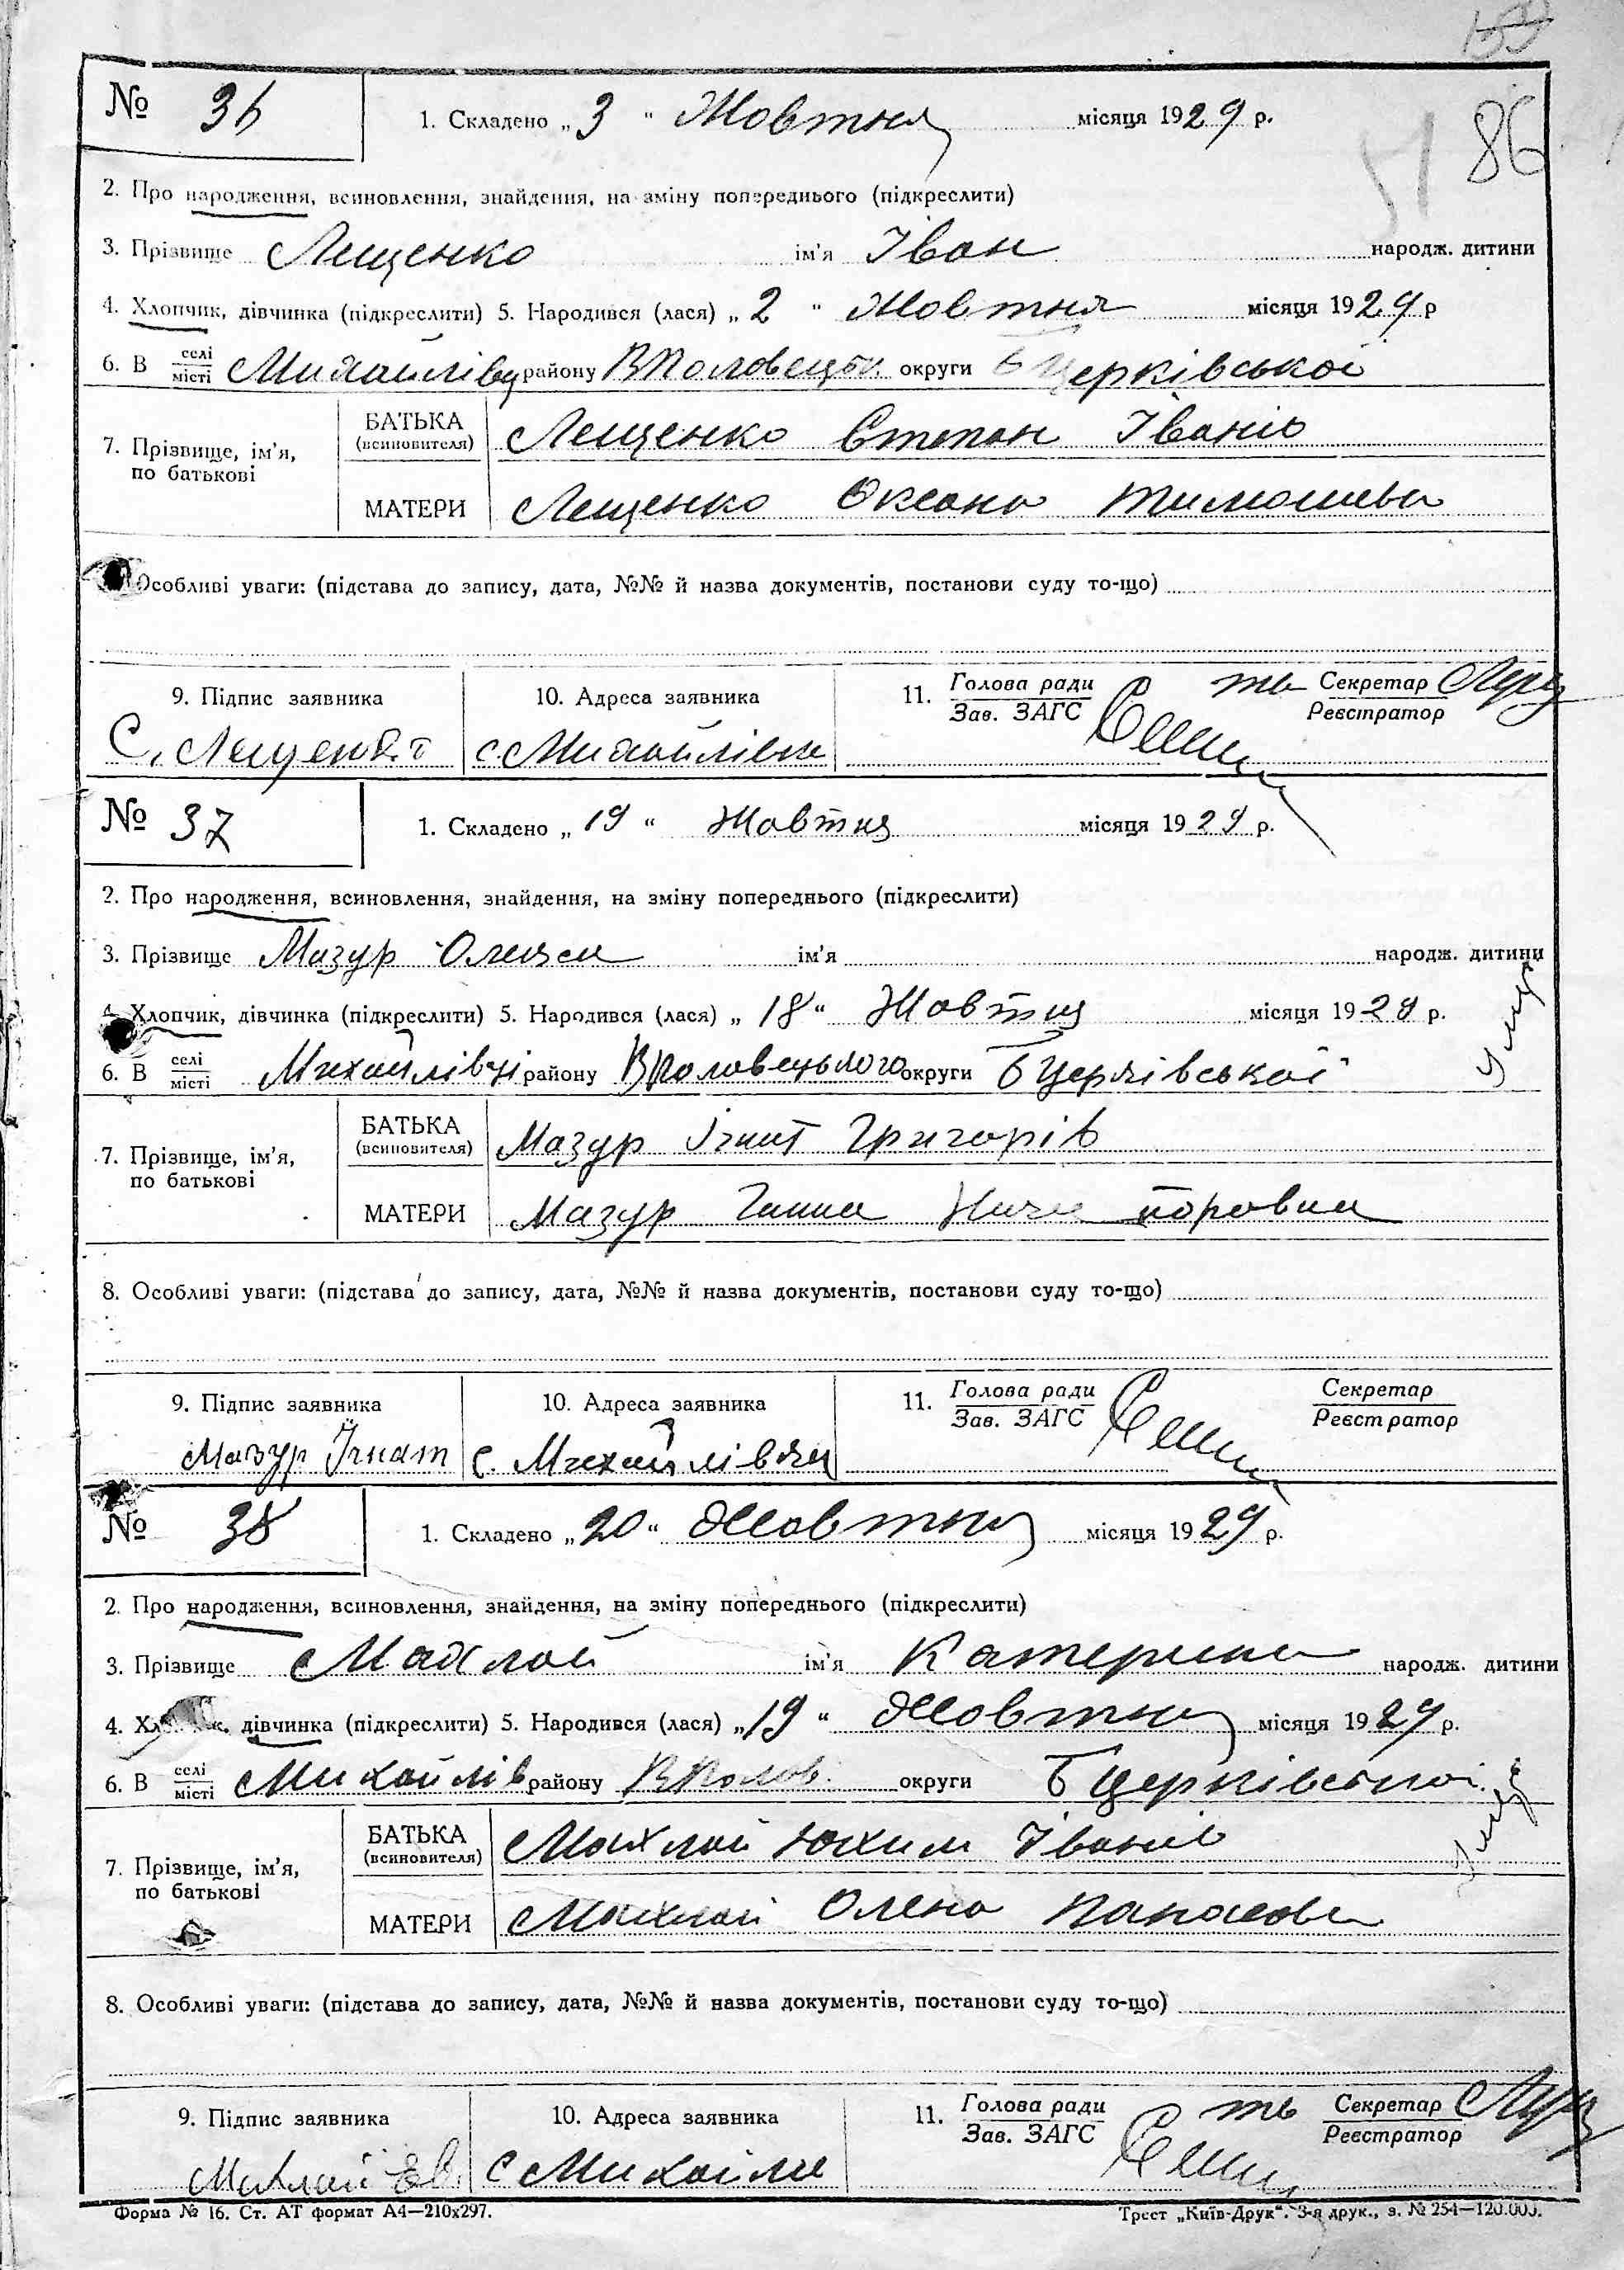 86
№ 36 1. Складено „3“ Жовтня місяця 1929 р.
2. Про народження, всиновлення, знайдення, на зміну попереднього (підкреслити)
3. Прізвище Лещенко ім'я Іван народж. дитини
4. Хлопчик, дівчинка (підкреслити) 5. Народився (лася) „2“ Жовтня місяця 1929 р
6. В селі місті Михайлівці району ВПоловецьк округи БЦерківської
7. Прізвище, ім'я, по батькові
БАТЬКА (всиновителя) Лещенко Степан Іванів
МАТЕРИ Лещенко Оксана Тимошева
Особливі уваги: (підстава до запису, дата, №№ й назва документів, постанови суду то-що)
9. Підпис заявника 10. Адреса заявника 11. Голова ради Зав. ЗАГС тв Секретар Реєстратор
С. Лещенко с. Михайлівка
№ 37 1. Складено „19“ Жовтня місяця 1929 р.
2. Про народження, всиновлення, знайдення, на зміну попереднього (підкреслити)
3. Прізвище Мазур Олекса ім'я народж. дитини
4. Хлопчик, дівчинка (підкреслити) 5. Народився (лася) „18“ Жовтня місяця 1929 р.
6. В селі місті Михайлівці району ВПоловецького округи БЦерківської
7. Прізвище, ім'я, по батькові
БАТЬКА (всиновителя) Мазур Ігнат Григорів
МАТЕРИ Мазур Ганна Ничипоровна
8. Особливі уваги: (підстава до запису, дата, №№ й назва документів, постанови суду то-що)
9. Підпис заявника 10. Адреса заявника 11. Голова ради Зав. ЗАГС Секретар Реєстратор
Мазур Ігнат с. Михайлівки
№ 38 1. Складено „20“ Жовтня місяця 1929 р.
2. Про народження, всиновлення, знайдення, на зміну попереднього (підкреслити)
3. Прізвище Махлай ім'я Катерина народж. дитини
4. дівчинка (підкреслити) 5. Народився (лася) „19“ Жовтня місяця 1929 р.
6. В селі місті Михайлів району ВПолов. округи БЦерківської
7. Прізвище, ім'я, по батькові
БАТЬКА (всиновителя) Махлай Юхим Іванів
МАТЕРИ Махлай Олена Панасова
8. Особливі уваги: (підстава до запису, дата, №№ й назва документів, постанови суду то-що)
9. Підпис заявника 10. Адреса заявника 11. Голова ради Зав. ЗАГС тв Секретар Реєстратор
Махлай с Михайлів
Форма № 16. Ст. АТ формат А4—210х297. Трест „Київ-Друк“. 3-я друк., з. № 254—120.000.